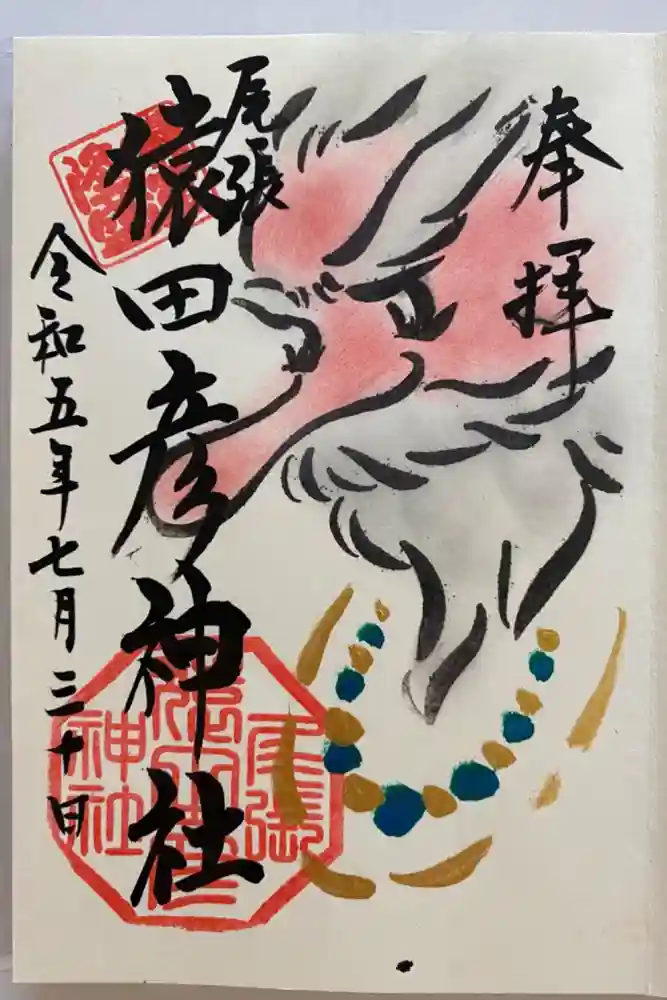 奉拝
尾張
猿田彦神社
令和五年七月三十日
尾張
神社